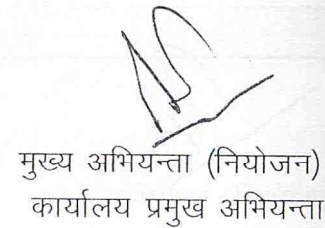 मुख्य अभियन्ता (नियोजन)
कार्यालय प्रमुख अभियन्ता